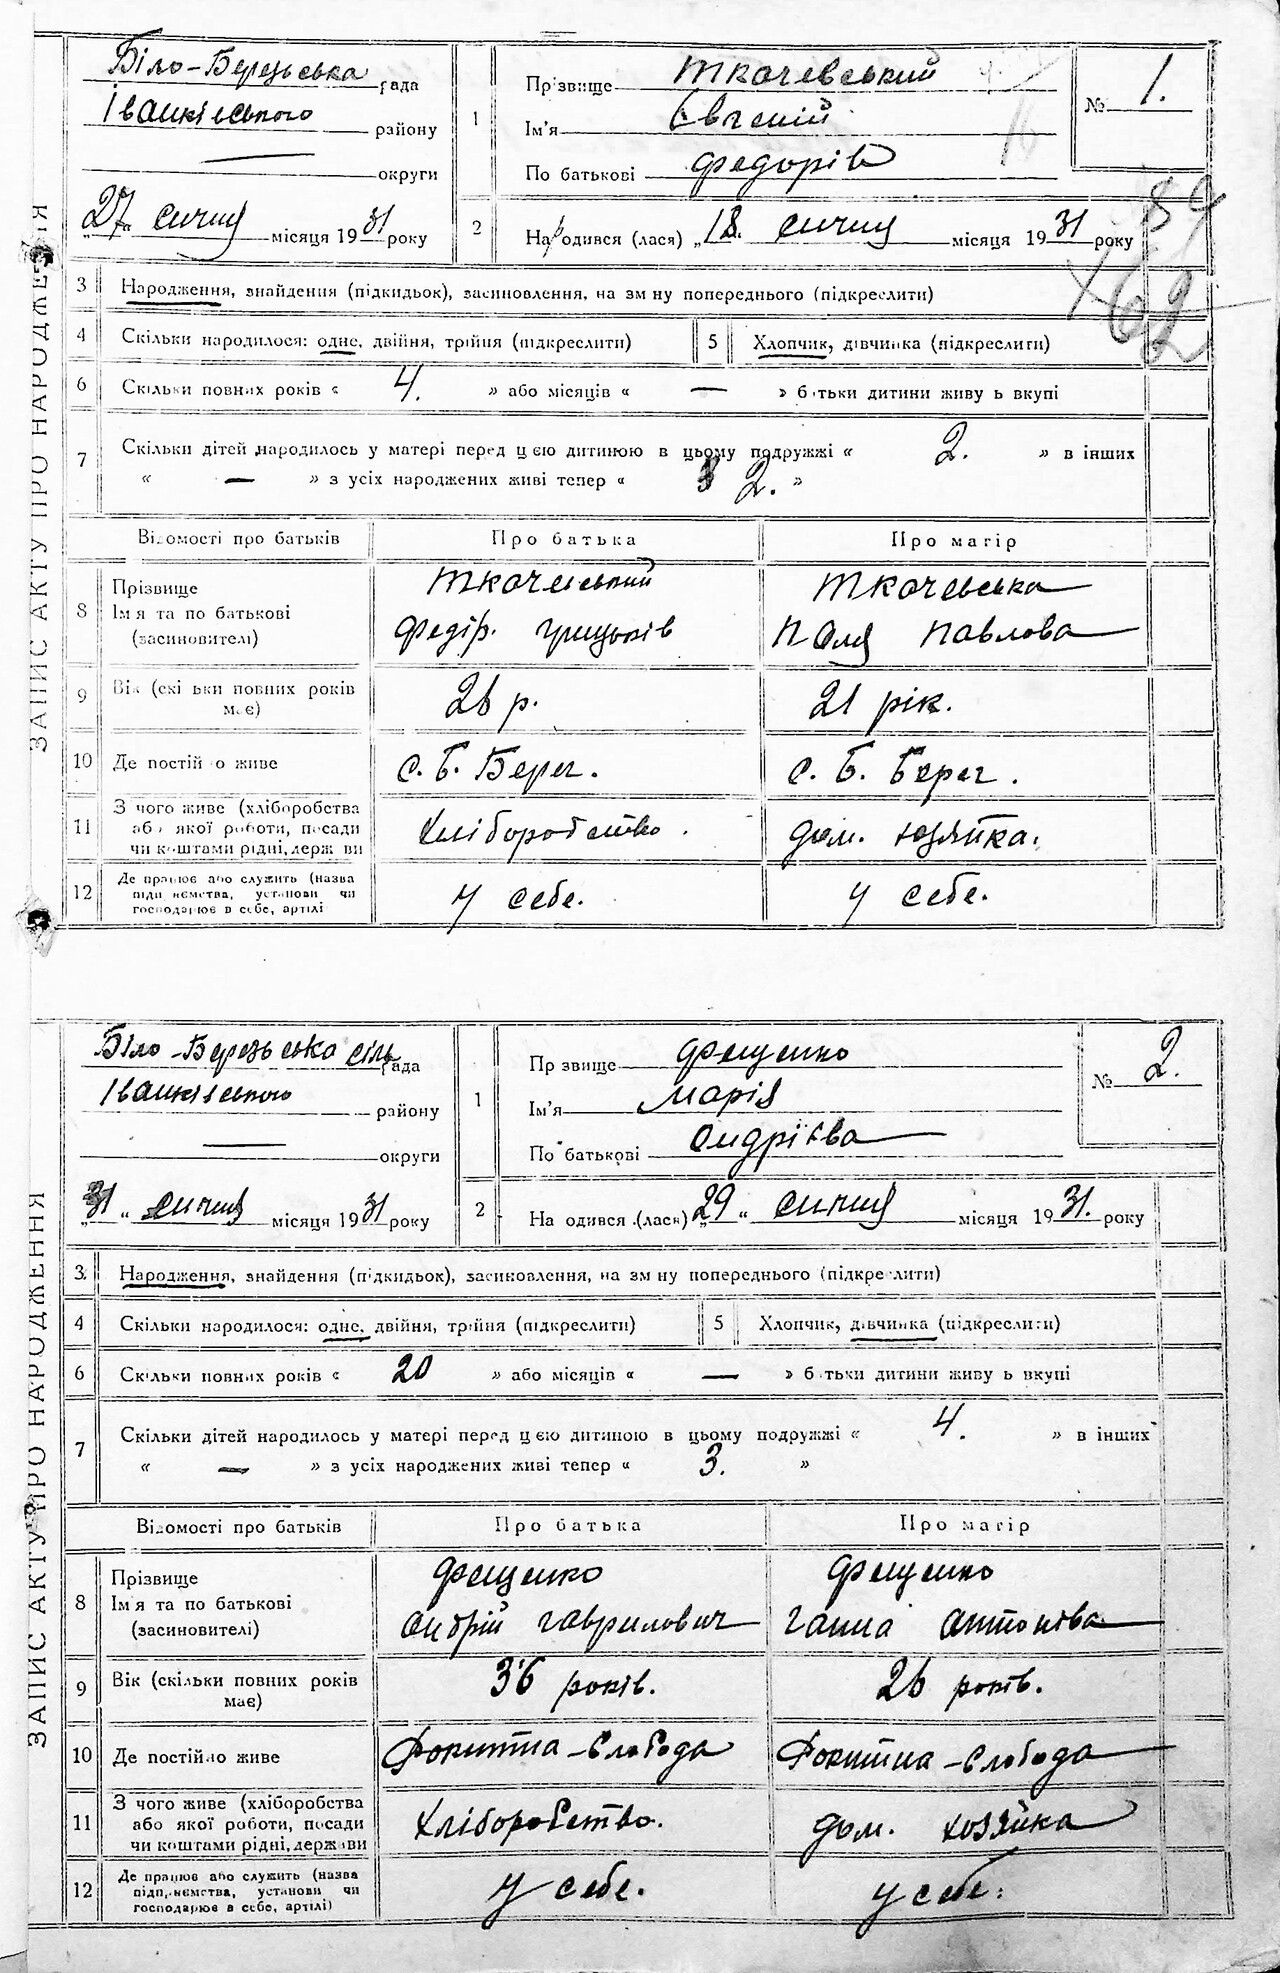 ЗАПИС АКТУ ПРО НАРОДЖЕННЯ
Біло-Березьська рада
Іванківського району
— округи
27 січня місяця 1931 року
1
Прізвище Ткачевський
Ім'я Євгеній
По батькові Федорів
№ 1.
59
62
2
Народився (лася) „18. січня місяця 1931 року
3 Народження, знайдення (підкидьок), засиновлення, на зм ну попереднього (підкреслити)
4 Скільки народилося: одне, двійня, трійня (підкреслити) 5 Хлопчик, дівчинка (підкреслити)
6 Скільки повних років « 4. » або місяців « — » батьки дитини живу ь вкупі
7 Скільки дітей народилось у матері перед цією дитиною в цьому подружжі « 2. » в інших
« — » з усіх народжених живі тепер « 2. »
Відомості про батьків Про батька Про матір
8 Прізвище Ткачевський Ткачевська
Імя та по батькові Федір. Грицьків Поля Павлова
(засиновителі)
9 Вік (скі ьки повних років має) 26 р. 21 рік.
10 Де постій о живе с. Б. Берег. с. Б. Берег.
11 З чого живе (хліборобства або якої роботи, посади чи коштами рідні, держ ви Хліборобство. дом. хозяйка.
12 Де працює або служить (назва підп иємства, установи чи господарює в себе, артілі У себе. У себе.
ЗАПИС АКТУ ПРО НАРОДЖЕННЯ
Біло-Березьська сіль рада
Іванківського району
— округи
„31 “ січня місяця 1931 року
1
Пр звище Фещенко
Ім'я Марія
По батькові Андріёва
№ 2.
2
На одився (лася) „29 “ січня місяця 1931. року
3 Народження, знайдення (підкидьок), засиновлення, на зм ну попереднього (підкреслити)
4 Скільки народилося: одне, двійня, трійня (підкреслити) 5 Хлопчик, дівчинка (підкреслити)
6 Скільки повних років « 20 » або місяців « — » б тьки дитини живу ь вкупі
7 Скільки дітей народилось у матері перед цією дитиною в цьому подружжі « 4. » в інших
« — » з усіх народжених живі тепер « 3. »
Відомості про батьків Про батька Про матір
8 Прізвище Фещенко Фещенко
Імя та по батькові Андрій Гаврилович Ганна Антонівa
(засиновителі)
9 Вік (скільки повних років має) 36 років. 26 років.
10 Де постійно живе Рокитна-Слобода Рокитна-Слобода
11 З чого живе (хліборобства або якої роботи, посади чи коштами рідні, держави Хліборобство. дом. хозяйка
12 Де працює або служить (назва підп, иємства, установи чи господарює в себе, артілі) У себе. У себе.